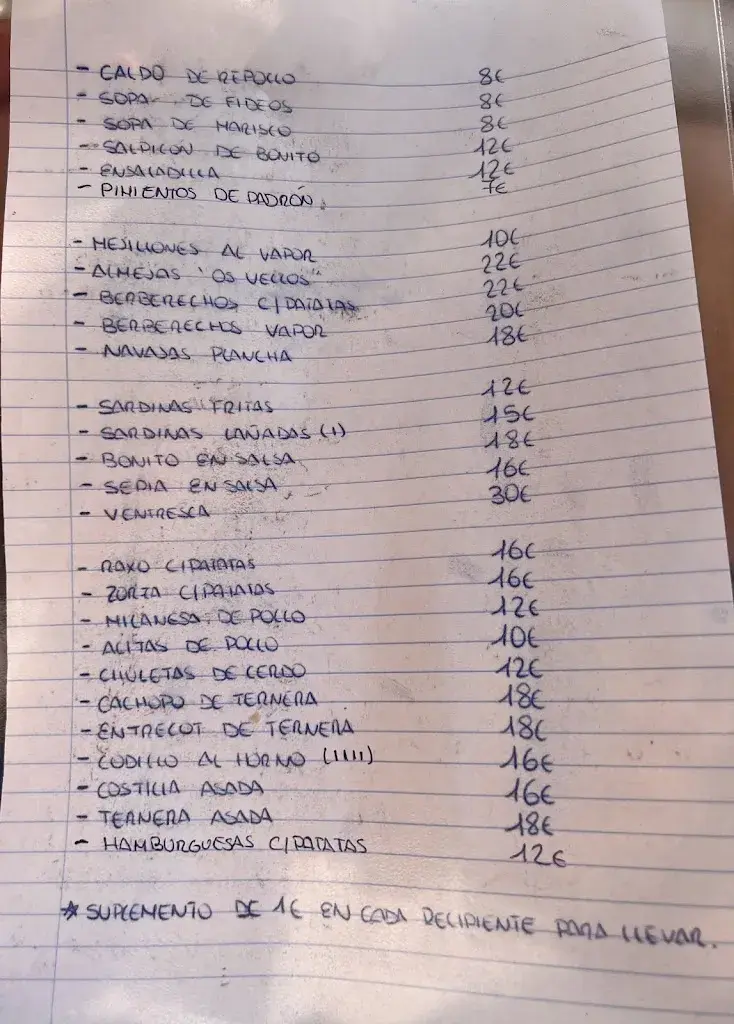 - CALDO DE REPOLLO 8€
- SOPA DE FIDEOS 8€
- SOPA DE MARISCO 8€
- SALPICÓN DE BONITO 12€
- ENSALADILLA 12€
- PIMIENTOS DE PADRÓN. 7€
- MEJILLONES AL VAPOR 10€
- ALMEJAS "OS VELLOS" 22€
- BERBERECHOS C/PATATAS 22€
- BERBERECHOS VAPOR 20€
- NAVAJAS PLANCHA 18€
- SARDINAS FRITAS 12€
- SARDINAS LAÑADAS (1) 15€
- BONITO EN SALSA 18€
- SEPIA EN SALSA 16€
- VENTRESCA 30€
- RAXO C/PATATAS 16€
- ZORZA C/PATATAS 16€
- MILANESA DE POLLO 12€
- ALITAS DE POLLO 10€
- CHULETAS DE CERDO 12€
- CACHOPO DE TERNERA 18€
- ENTRECOT DE TERNERA 18€
- CODILLO AL HORNO (11111) 16€
- COSTILLA ASADA 16€
- TERNERA ASADA 18€
- HAMBURGUESAS C/PATATAS 12€
* SUPLEMENTO DE 1€ EN CADA RECIPIENTE PARA LLEVAR.